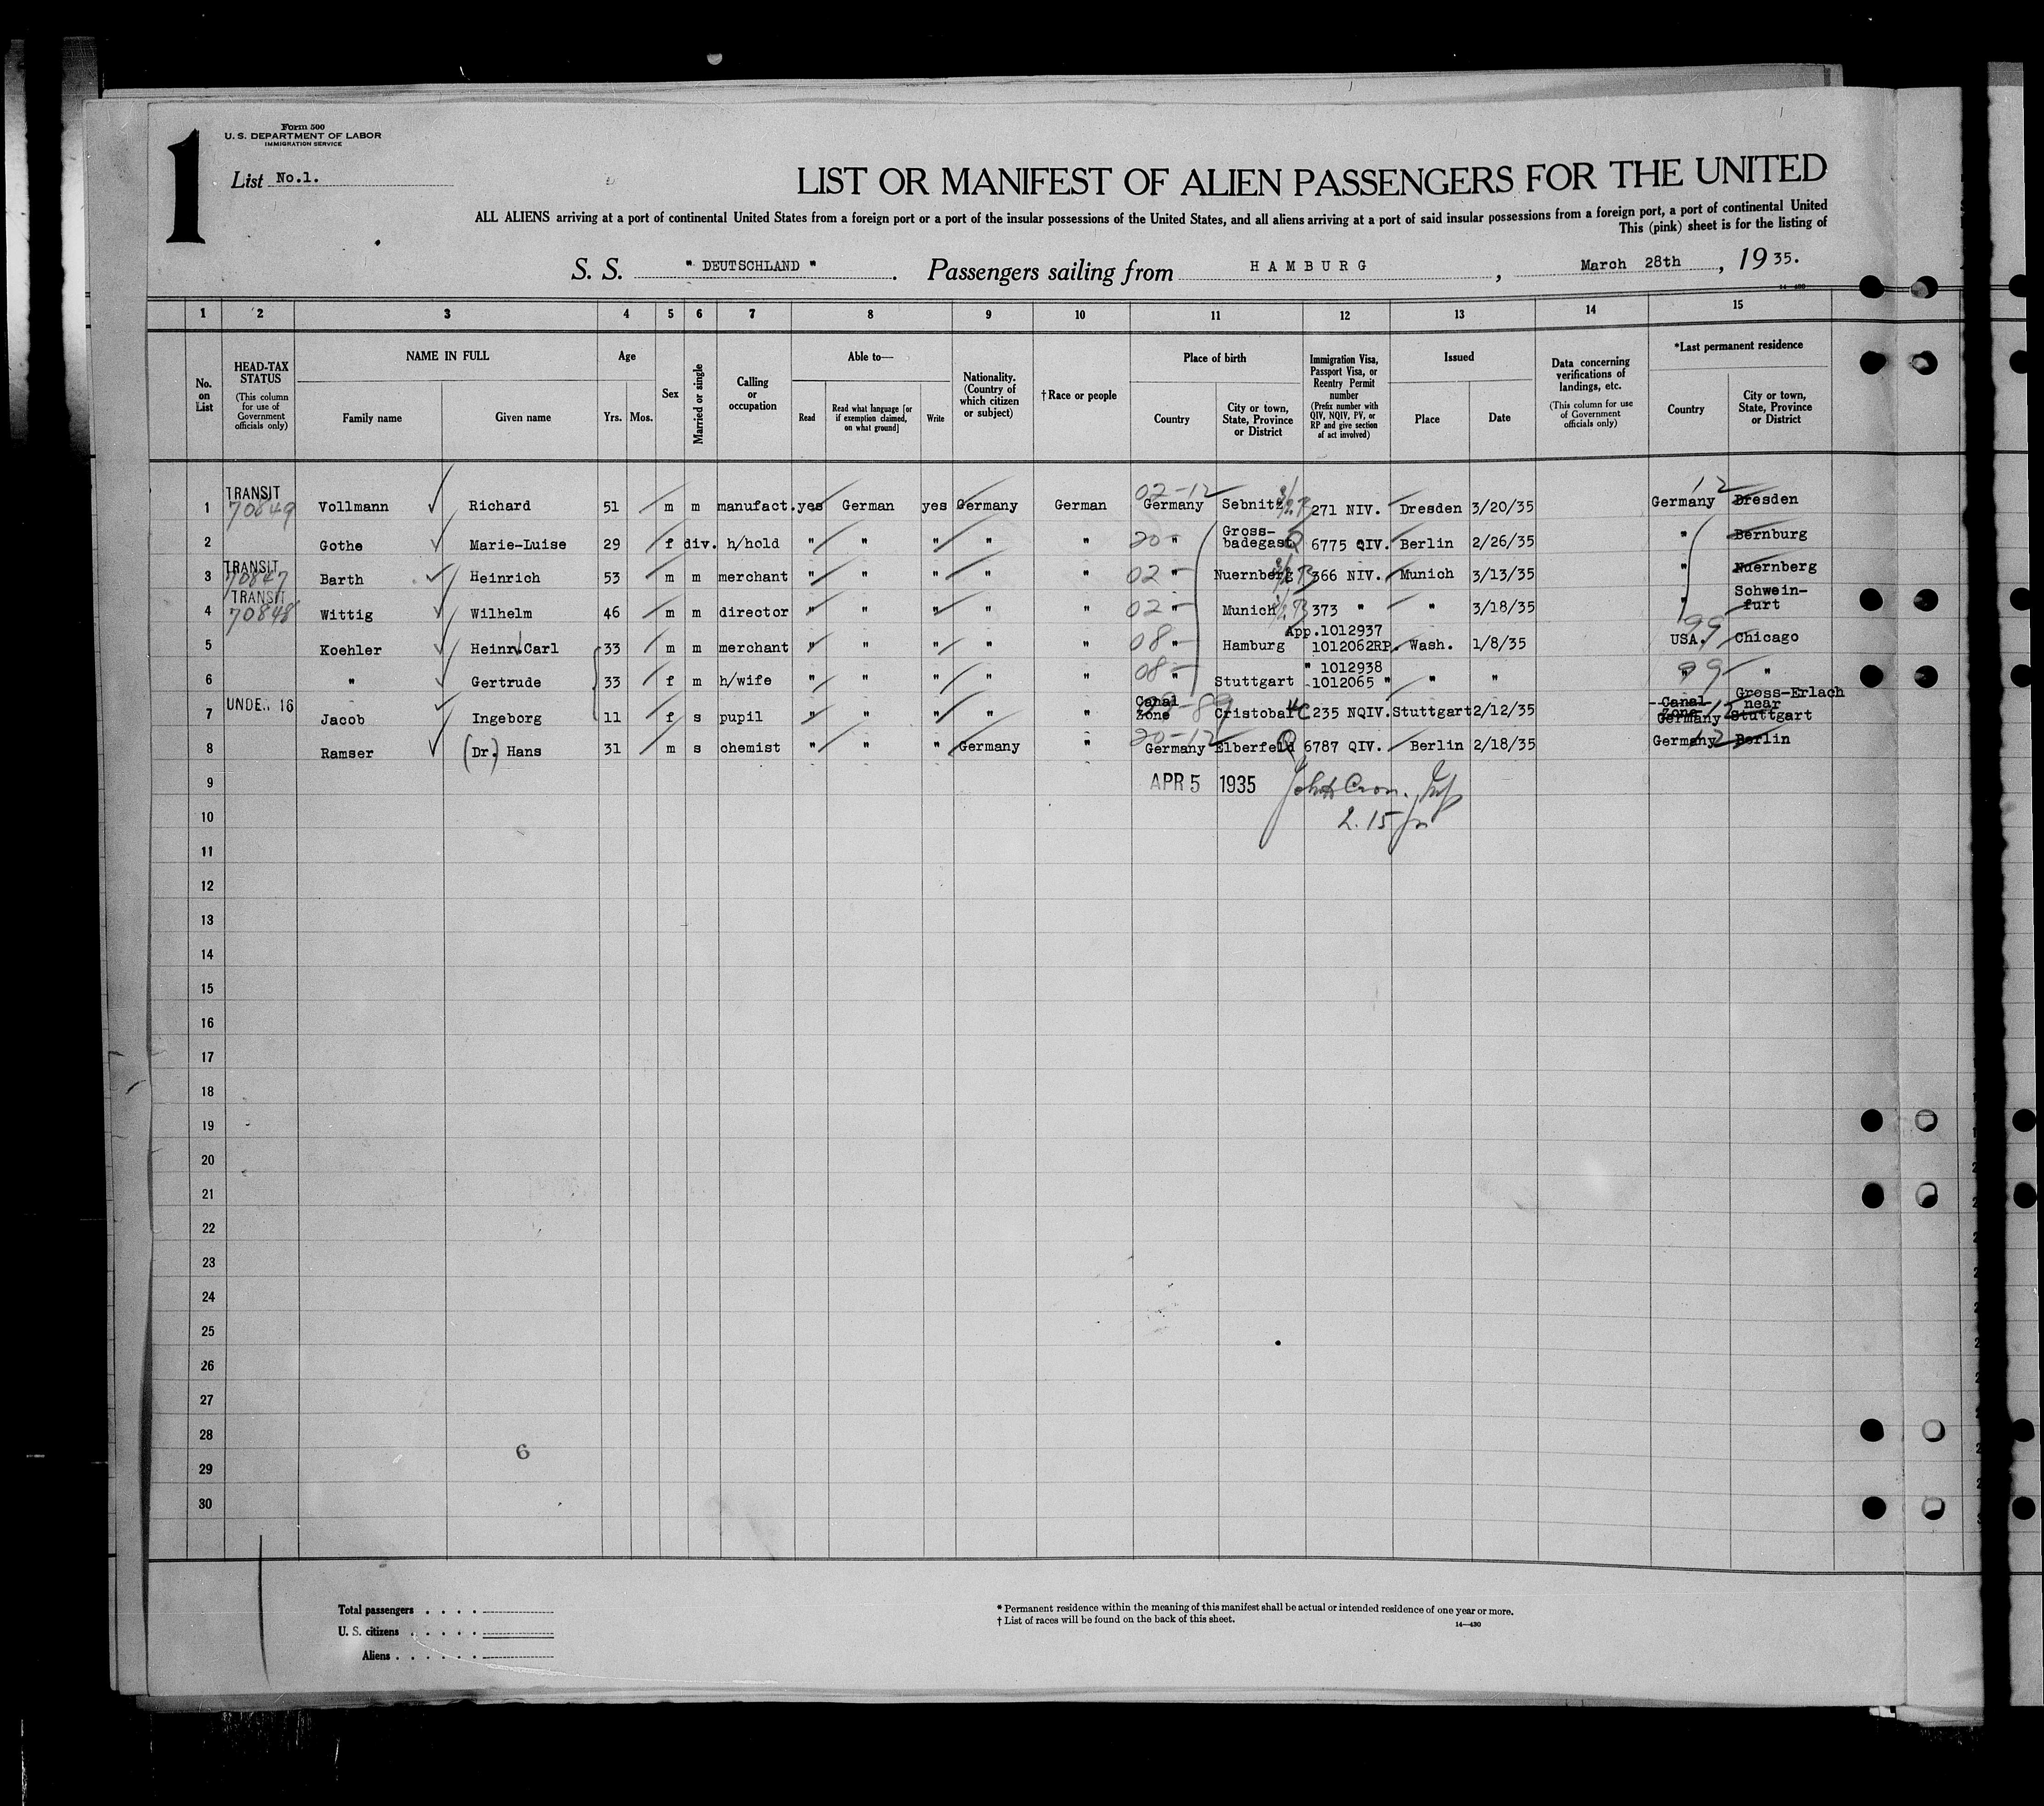 1
Form 500
U. S. DEPARTMENT OF LABOR
IMMIGRATION SERVICE
List No.1.
LIST OR MANIFEST OF ALIEN PASSENGERS FOR THE UNITED
ALL ALIENS arriving at a port of continental United States from a foreign port or a port of the insular possessions of the United States, and all aliens arriving at a port of said insular possessions from a foreign port, a port of continental United
This (pink) sheet is for the listing of
S. S. " DEUTSCHLAND " . Passengers sailing from HAMBURG , March 28th , 19 35.
14—430
1 2 3 4 5 6 7 8 9 10 11 12 13 14 15
No. on List
HEAD-TAX STATUS (This column for use of Government officials only)
NAME IN FULL
Family name Given name
Age
Yrs. Mos.
Sex
Married or single
Calling or occupation
Able to—
Read Read what language [or if exemption claimed, on what ground] Write
Nationality. (Country of which citizen or subject)
†Race or people
Place of birth
Country City or town, State, Province or District
Immigration Visa, Passport Visa, or Reentry Permit number (Prefix number with QIV, NQIV, PV, or RP and give section of act involved)
Issued
Place Date
Data concerning verifications of landings, etc. (This column for use of Government officials only)
*Last permanent residence
Country City or town, State, Province or District
1 TRANSIT 70849 Vollmann Richard 51 m m manufact. yes German yes Germany German 02-12 Germany Sebnitz 271 NIV. Dresden 3/20/35 12 Germany Dresden
2 Gothe Marie-Luise 29 f div. h/hold " " " " " 20- " Gross-badegast Q 6775 QIV. Berlin 2/26/35 " Bernburg
3 TRANSIT 70847 Barth Heinrich 53 m m merchant " " " " " 02- " Nuernberg 366 NIV. Munich 3/13/35 " Nuernberg
4 TRANSIT 70848 Wittig Wilhelm 46 m m director " " " " " 02- " Munich 373 " " 3/18/35 " Schwein-furt
5 Koehler Heinr. Carl 33 m m merchant " " " " " 08- " Hamburg App.1012937 1012062RP. Wash. 1/8/35 99 USA. Chicago
6 " Gertrude 33 f m h/wife " " " " " 08- " Stuttgart " 1012938 1012065 " " " 99 " "
7 UNDER 16 Jacob Ingeborg 11 f s pupil " " " " " Canal Zone 89 Cristobal 235 NQIV. Stuttgart 2/12/35 Canal Zone 12 Germany Gross-Erlach near Stuttgart
8 Ramser (Dr.) Hans 31 m s chemist " " " Germany " 20-12 Germany Elberfeld Q 6787 QIV. Berlin 2/18/35 12 Germany Berlin
9 APR 5 1935
10 2.15
11
12
13
14
15
16
17
18
19
20
21
22
23
24
25
26
27
28
29
30
6
Total passengers . . . .
U. S. citizens . . . . .
Aliens . . . . . .
* Permanent residence within the meaning of this manifest shall be actual or intended residence of one year or more.
† List of races will be found on the back of this sheet.
14—430